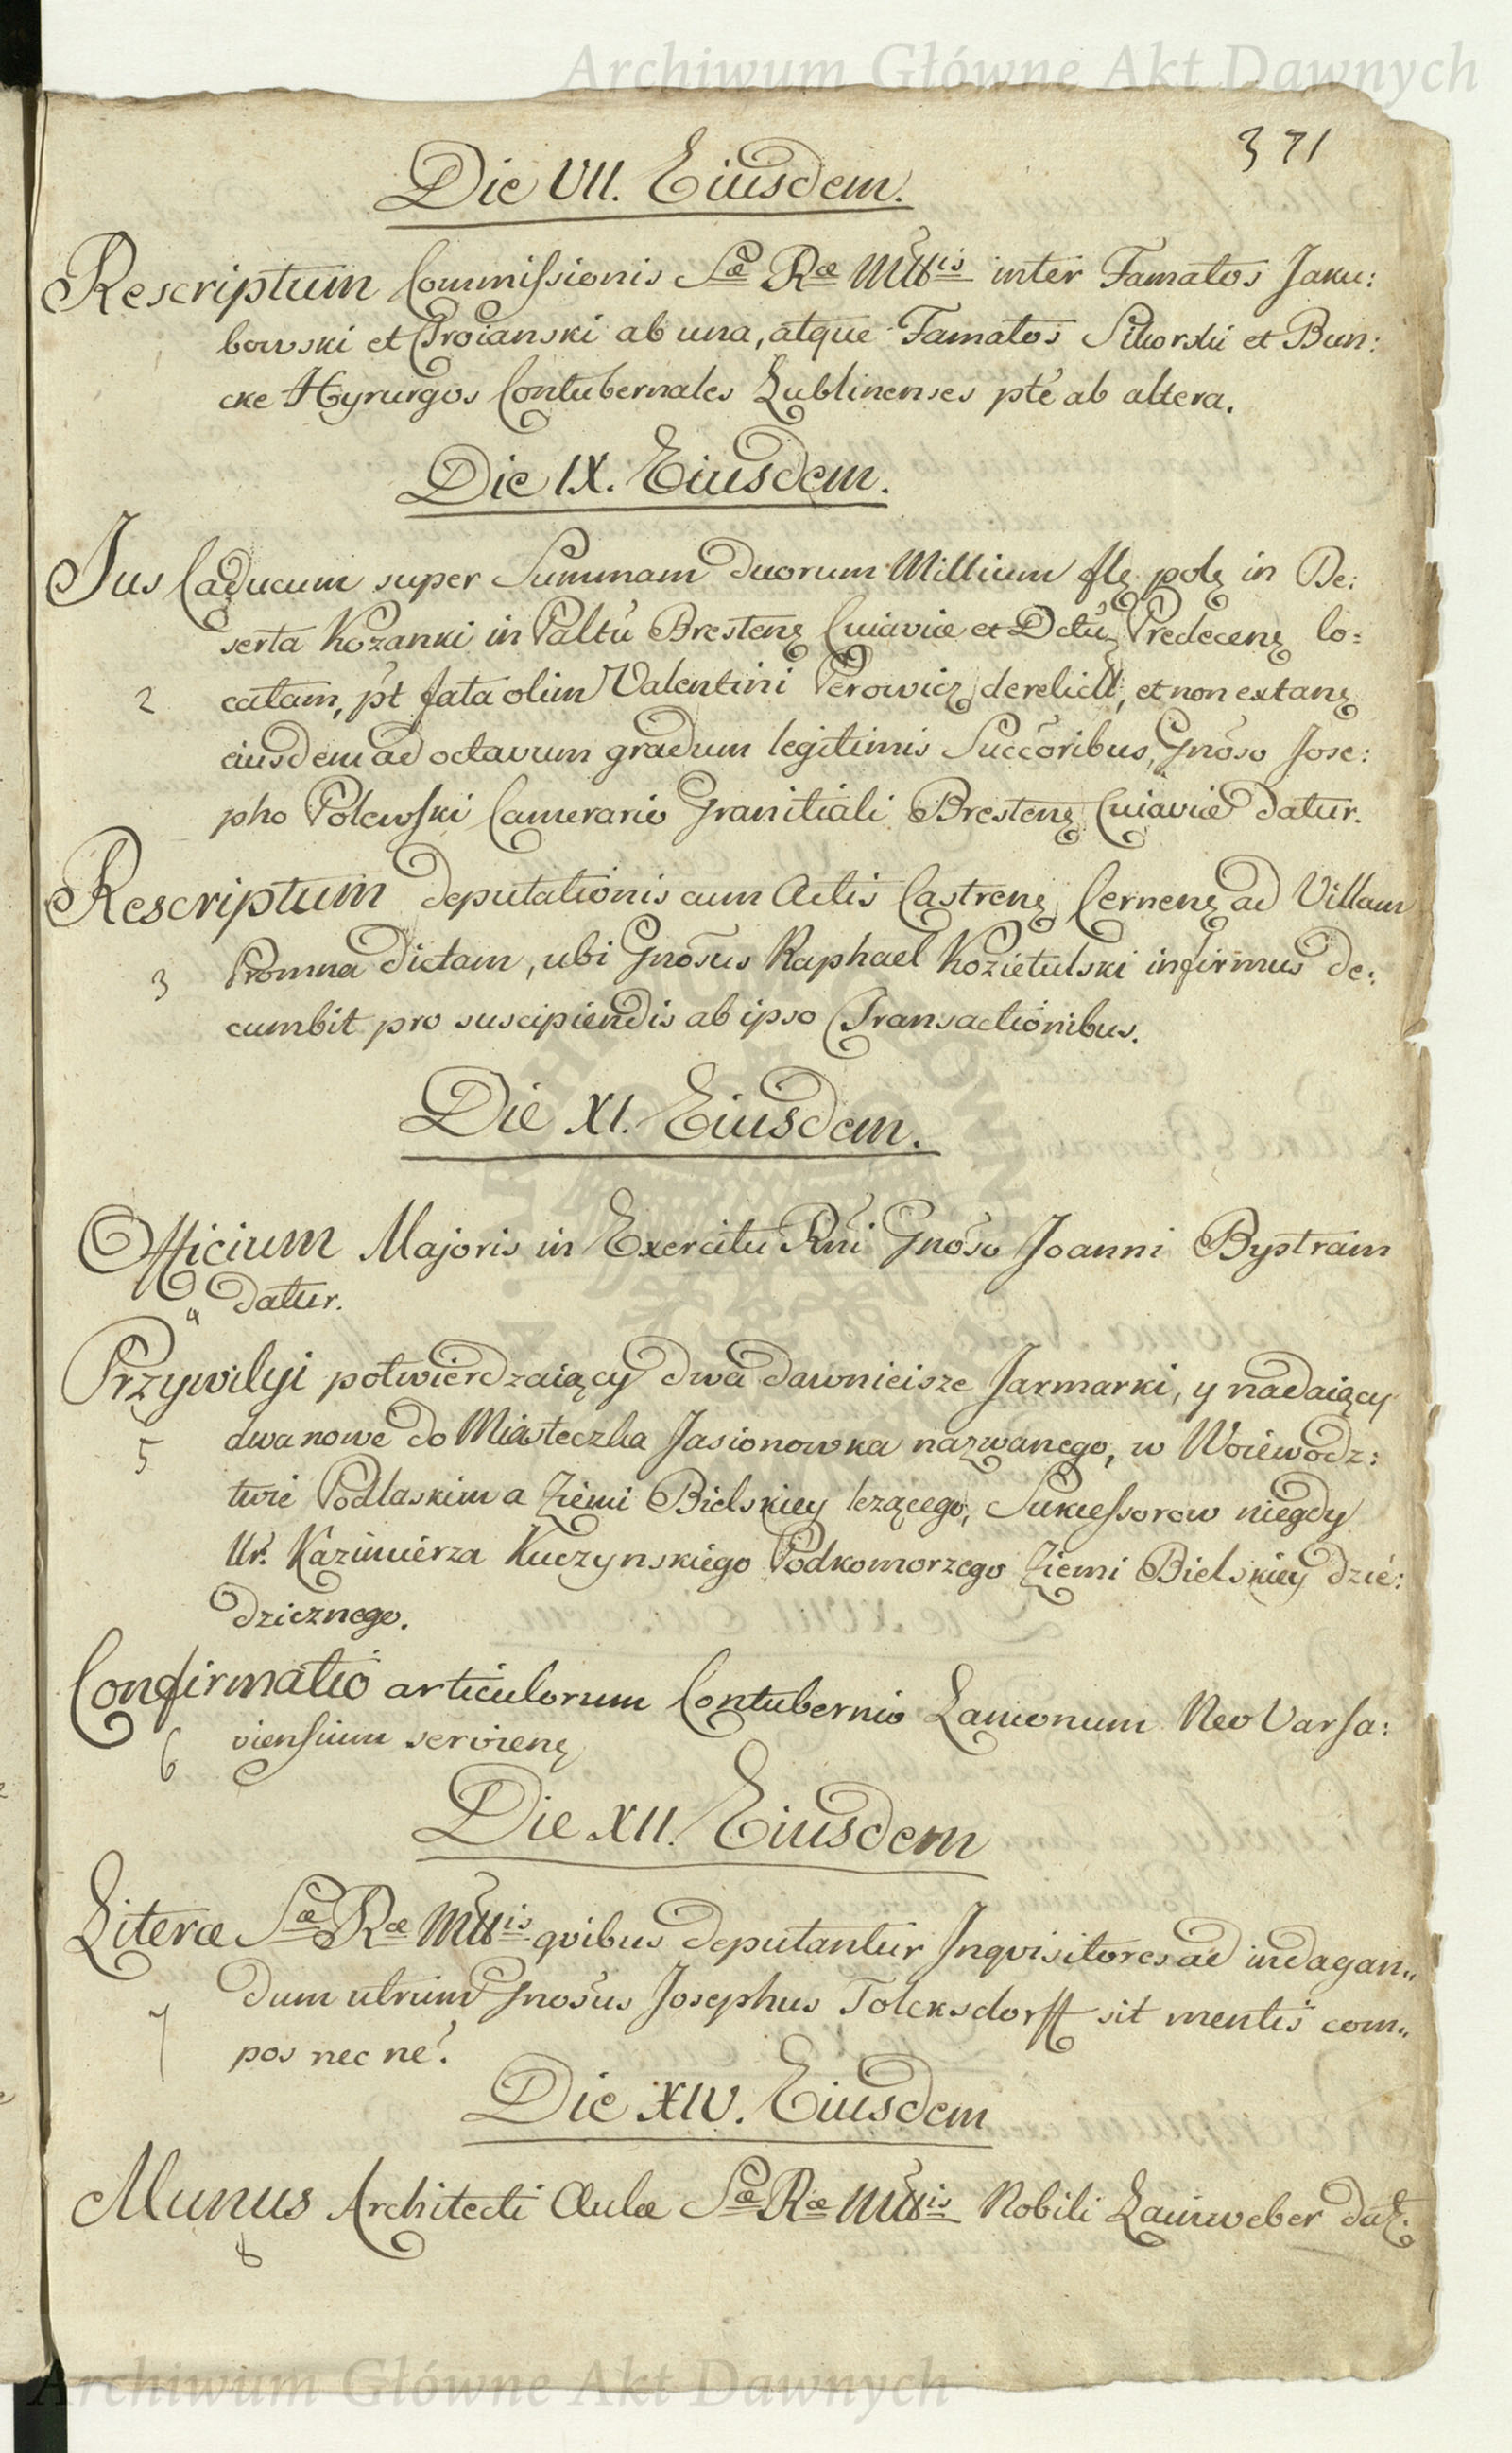 Archiwum Główne Akt Dawnych
371
Die VII. Eiusdem.
Rescriptum Commissionis Sæ Ræ Mttis inter Famatos Jaku:
bowski et Troianski ab una, atque Famatos Sikorski et Bun:
cke Hyrurgos Contubernales Lublinenses pte ab altera.
Die IX. Eiusdem.
Jus Caducum super Summam duorum Millium flę polę in De:
serta Kozanki in Paltu Brestenę Cuiaviæ et Dctu Predecenę lo:
2 catam, pt fata olim Valentini Perowicz derelict, et non extanę
eiusdem ad octavum gradum legitimis Succoribus, Gnoso Jose:
pho Polewski Camerario Granitiali Brestenę Cuiaviæ datur.
Rescriptum deputationis cum Actis Castrenę Cernenę ad Villam
3 Promna dictam, ubi Gnosus Raphael Kozietulski infirmus de:
cumbit pro suscipiendis ab ipso Transactionibus.
Die XI. Eiusdem.
Officium Majoris in Exercitu Rni Gnoso Joanni Bystram
4 datur.
Przywilyi potwierdzaiący dwa dawnieisze Jarmarki, y nadaiący
5 dwa nowe do Miasteczka Jasionowka nazwanego, w Woiewodz:
twie Podlaskim a Ziemi Bielskiey lezącego, Sukcessorow niegdy
Ur. Kazimierza Kuczynskiego Podkomorzego Ziemi Bielskiey dzie:
dzicznego.
Confirmatio articulorum Contubernio Lanionum Neo Varsa:
6 viensium servienę
Die XII. Eiusdem
Literæ Sæ Ræ Mttis qvibus deputantur Inqvisitores ad indagan„
dum utrum Gnosus Josephus Tolcksdorff sit mentis com„
7 pos nec ne?
Die XIV. Eiusdem
Munus Architecti Aulæ Sæ Ræ Mttis Nobili Lauweber datę.
8
Archiwum Główne Akt Dawnych